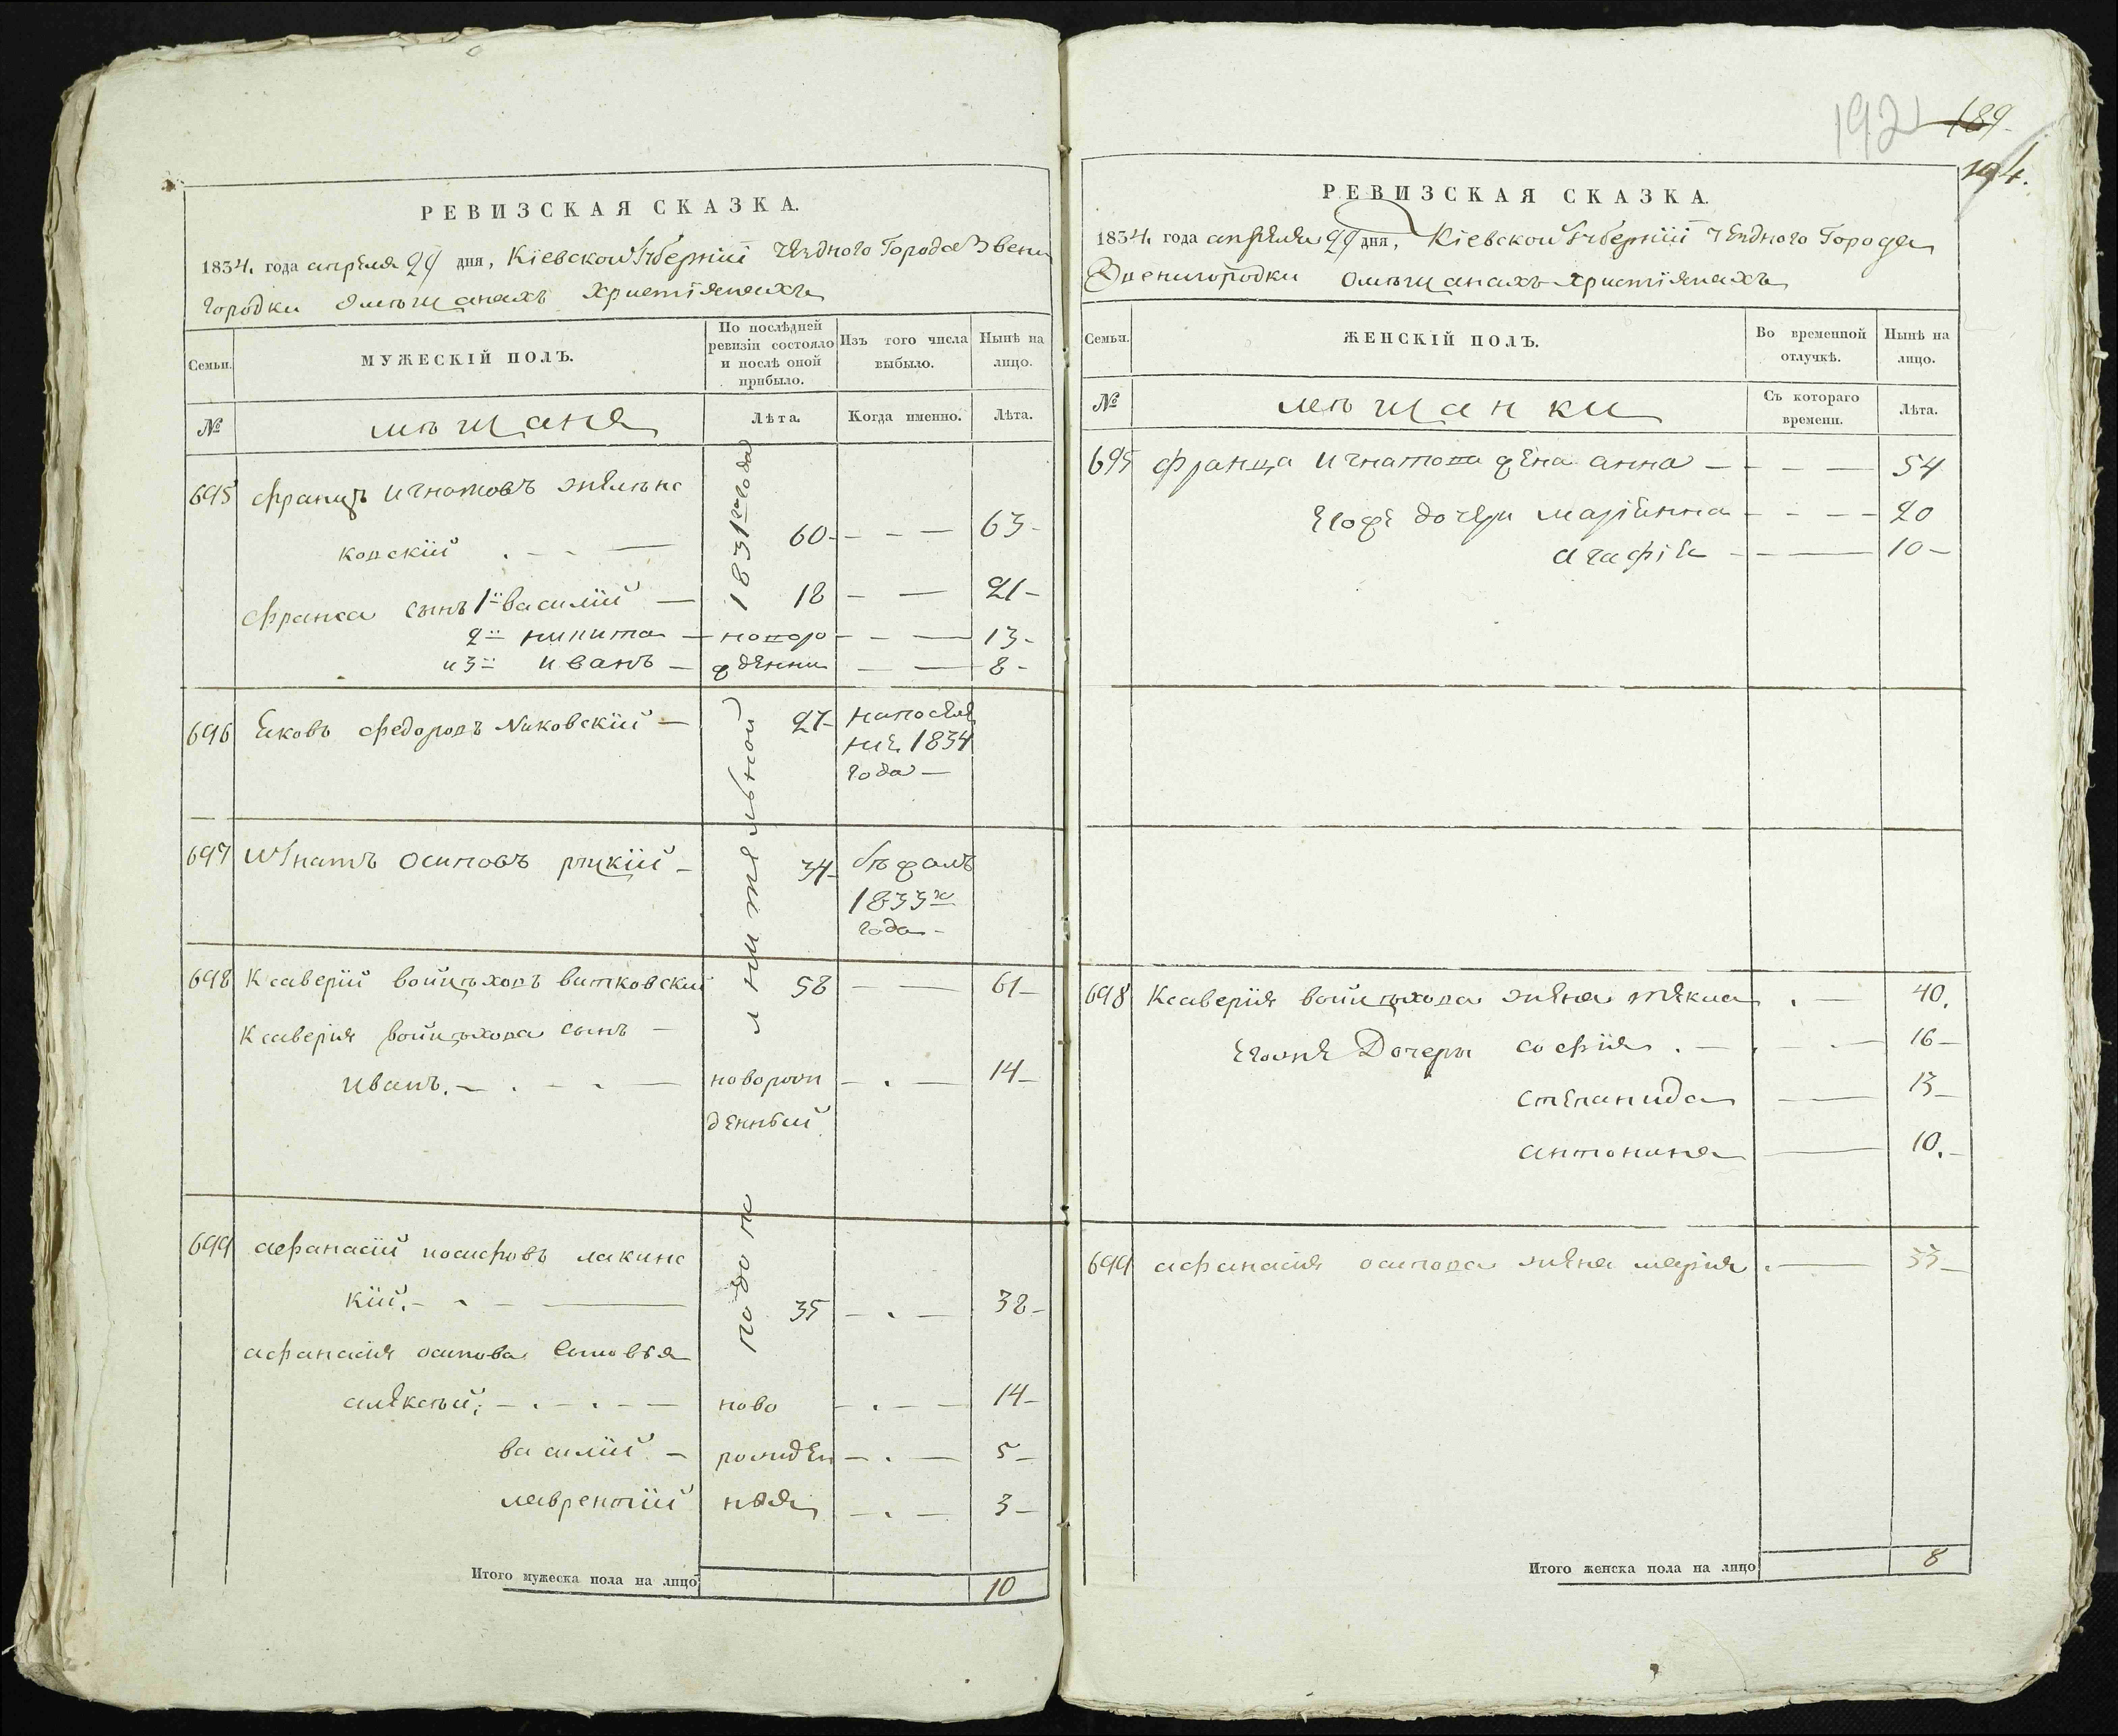 192 189
194.
РЕВИЗСКАЯ СКАЗКА.
1834. года апреля 29 дня, Кіевской Губерніи Уездного Города Звени
городки Омѣщанахъ Христіянахъ
Семьи.
МУЖЕСКІЙ ПОЛЪ.
По послѣдней ревизіи состояло и послѣ оной прибыло.
Изъ того числа выбыло.
Нынѣ на лицо.
№
мѣщане
Лѣта.
Когда именно.
Лѣта.
1831го года
дополнительной
695 Францъ Игнатовъ
ковскій 60 - 63
Франса сынъ 1й Василий 18 - 21
2й Никита - новоро - 13
и 3й Иванъ - жденни - 8
696 Яковъ Федоровъ Яковскій - 27 напоселе
ние 1834
года
697 Игнатъ Осиповъ - 34 бѣжалъ
1833го
года
698 Ксаверій Войцѣховъ Витковский 58 - 61
Ксаверія Войцѣхова сынъ
Иванъ. - новорож - 14
денный
699 Афанасій Иосифовъ Лакинс
кій. - 35 - 38
Афанасія Осипова Сыновья
Алексѣй; - ново - 14
Василий - рожден - 5
Лаврентій ныя - 3
Итого мужеска пола на лицо 10
РЕВИЗСКАЯ СКАЗКА.
1834. года апреля 29 дня, Кіевской Губерніи Уездного Города
Звенигородки Омѣщанахъ Христіянахъ
Семьи.
ЖЕНСКІЙ ПОЛЪ.
Во временной отлучкѣ.
Нынѣ на лицо.
№
мѣщанки
Съ котораго времени.
Лѣта.
695 Франца Игнатова жена Анна - 54
Егоже дочери Маріянна - 20
Агафія - 10
698 Ксаверія Войцѣхова жена Текла - 40.
Егожъ Дочери Софія. - 16
Степанида - 13
Антонина - 10.
699 Афанасія Осипова жена Марія. - 33
Итого женска пола на лицо 8